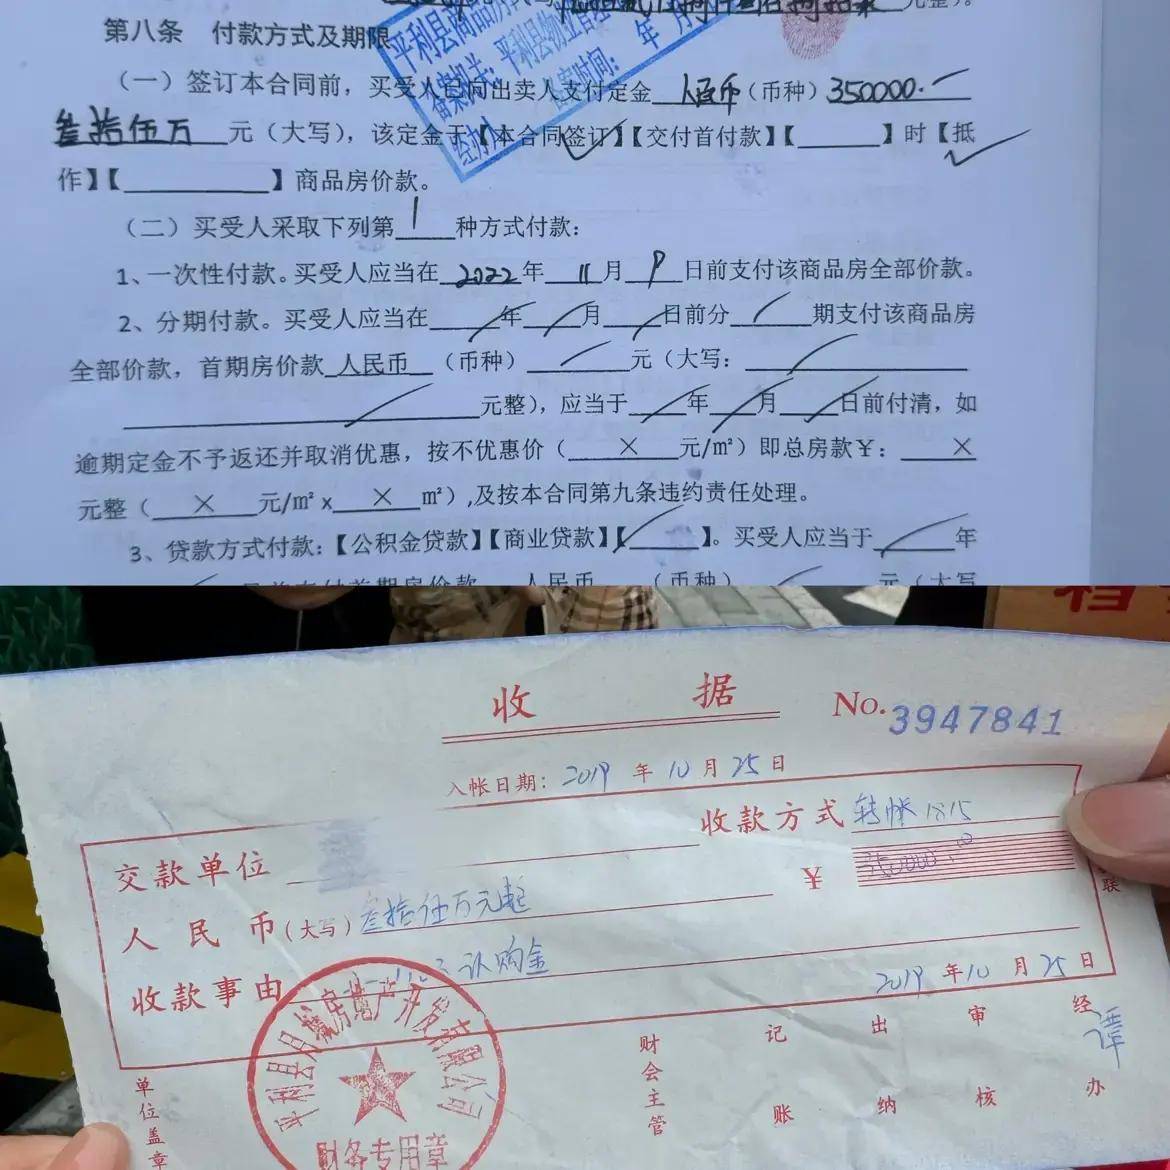 元整）。
第八条 付款方式及期限
平利县商品房
备案机关：平利县物业管
经办人 备案时间： 年 月
（一）签订本合同前，买受人已向出卖人支付定金 人民币（币种）350000.
叁拾伍万 元（大写），该定金于【本合同签订】【交付首付款】【 】时【抵
作】【 】商品房价款。
（二）买受人采取下列第 1 种方式付款：
1、一次性付款。买受人应当在 2022 年 11 月 9 日前支付该商品房全部价款。
2、分期付款。买受人应当在 年 月 日前分 期支付该商品房
全部价款，首期房价款 人民币 （币种） 元（大写：
元整），应当于 年 月 日前付清，如
逾期定金不予返还并取消优惠，按不优惠价（ × 元/㎡）即总房款￥： ×
元整（ × 元/㎡ x × ㎡）,及按本合同第九条违约责任处理。
3、贷款方式付款：【公积金贷款】【商业贷款】【 】。买受人应当于 年
人民币 （币种） 元（大写
档
收 据 No.3947841
入帐日期：2019 年 10 月 25 日
收款方式 转帐1815
交款单位 ￥ 350000.00
人民币（大写）叁拾伍万元起
收款事由 认购金
2019 年 10 月 25 日
平利县 房地产开发有限公司
财务专用章
单位盖章 财会主管 记账 出纳 审核 经办 谭
联